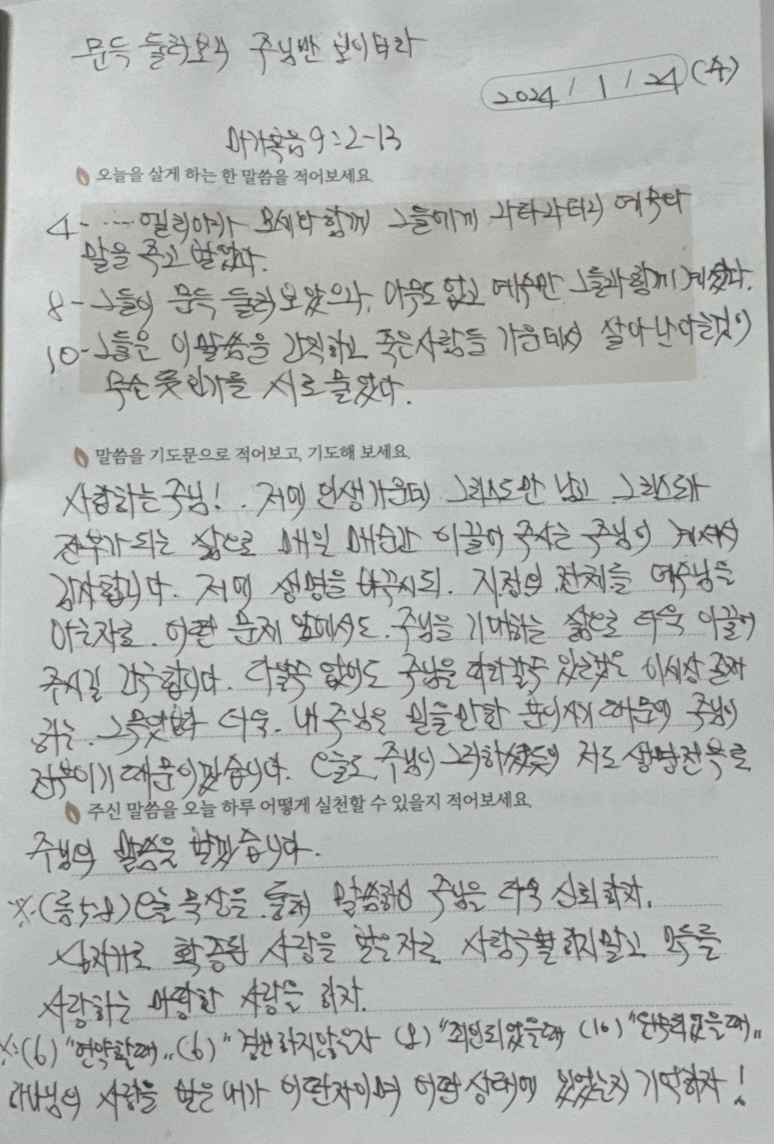 문득 둘러보니 주님만 보이더라
2024 / 1 / 24 (수)
마가복음 9:2-13
오늘을 살게 하는 한 말씀을 적어보세요.
4- ····· 엘리야가 모세와 함께 그들에게 나타나더니 예수와
말을 주고 받았다.
8- 그들이 문득 둘러 보았으나, 아무도 없고 예수만 그들과 함께 계셨다.
10- 그들은 이 말씀을 간직하고 죽은 사람들 가운데서 살아난다는 것이
무슨 뜻인가를 서로 물었다.
말씀을 기도문으로 적어보고, 기도해 보세요.
사랑하는 주님! 저의 인생 가운데 그리스도만 남고 그리스도가
전부가 되는 삶으로 매일 매순간 이끌어 주시는 주님이 계셔서
감사합니다. 저의 생명을 바꾸시되. 지정의 전체를 예수님을
아는자로. 어떤 문제 앞에서도. 주님을 기대하는 삶으로 더욱 이끌어
주시길 간구합니다. 다 알 수 없어도 주님을 따라갈 수 있는 것은 이 세상 존재
하는. 그 무엇보다 더욱. 내 주님은 믿을만한 분이시기 때문에 주님이
전부이기 때문이었습니다. 오늘도 주님이 그리하셨듯이 저도 생명 전부로
주신 말씀을 오늘 하루 어떻게 실천할 수 있을지 적어보세요.
주님의 말씀을 받겠습니다.
※ (롬5:8) 오늘 묵상을 통해 말씀하신 주님을 더욱 신뢰하자.
십자가로 확증된 사랑을 받은 자로 사랑 구별하지말고 모두를
사랑하는 마땅한 사랑을 하자.
※ (6) "연약할 때" (6) "경건하지 않은자 (8) "죄인 되었을 때 (10) "원수 되었을 때"
하나님의 사랑을 받은 내가 어떤 자이며 어떤 상태에 있었는지 기억하자!